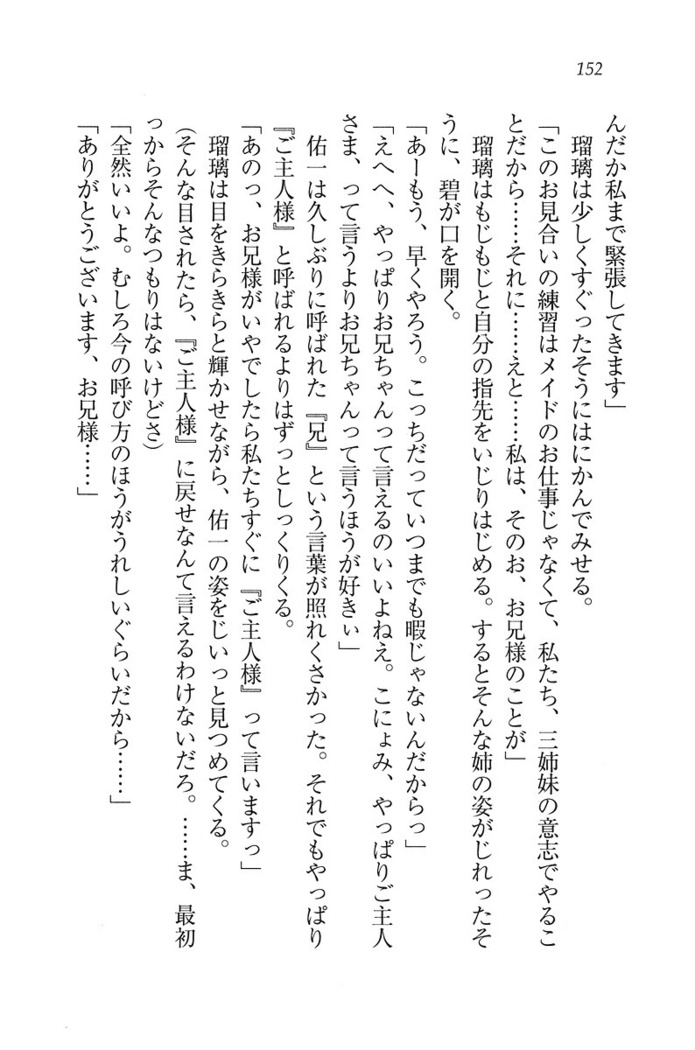 152
んだか私まで緊張してきます」
瑠璃は少しくすぐったそうにはにかんでみせる。
「このお見合いの練習はメイドのお仕事じゃなくて、私たち、三姉妹の意志でやるこ
とだから……それに……えと……私は、そのお、お兄様のことが」
瑠璃はもじもじと自分の指先をいじりはじめる。するとそんな姉の姿がじれったそ
うに、碧が口を開く。
「あーもう、早くやろう。こっちだっていつまでも暇じゃないんだからっ」
「えへへ、やっぱりお兄ちゃんって言えるのいいよねえ。こにょみ、やっぱりご主人
さま、って言うよりお兄ちゃんって言うほうが好きぃ」
佑一は久しぶりに呼ばれた『兄』という言葉が照れくさかった。それでもやっぱり
『ご主人様』と呼ばれるよりはずっとしっくりくる。
「あのっ、お兄様がいやでしたら私たちすぐに『ご主人様』って言いますっ」
瑠璃は目をきらきらと輝かせながら、佑一の姿をじいっと見つめてくる。
(そんな目されたら、『ご主人様』に戻せなんて言えるわけないだろ。……ま、最初
っからそんなつもりはないけどさ)
「全然いいよ。むしろ今の呼び方のほうがうれしいぐらいだから……」
「ありがとうございます、お兄様……」